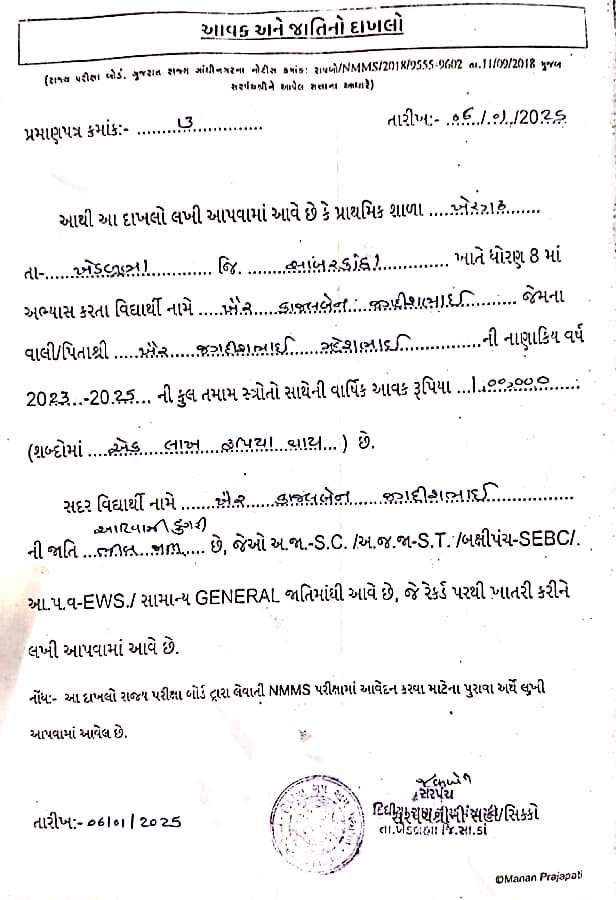 આવક અને જાતિનો દાખલો
(રાજ્ય પરીક્ષા બોર્ડ, ગુજરાત રાજ્ય ગાંધીનગરના નોટીસ ક્રમાંક: રાપબો/NMMS/2018/9555-9602 તા.11/09/2018 મુજબ
સરપંચશ્રીને આપેલ સત્તાના આધારે)
પ્રમાણપત્ર ક્રમાંક:- ................ તારીખ:- 06/01/2025
આથી આ દાખલો લખી આપવામાં આવે છે કે પ્રાથમિક શાળા ....ખેરગઢ........
તા-....ખેડબ્રહ્મા............ જિ. ......સાબરકાંઠા............ ખાતે ધોરણ 8 માં
અભ્યાસ કરતા વિદ્યાર્થી નામે .....ખૈર કાજલબેન જગદીશભાઈ........ જેમના
વાલી/પિતાશ્રી ....ખૈર જગદીશભાઈ ............ની નાણાકિય વર્ષ
2023..-2025... ની કુલ તમામ સ્ત્રોતો સાથેની વાર્ષિક આવક રૂપિયા ...1,00,000......
(શબ્દોમાં ....એક લાખ રૂપિયા ....) છે.
સદર વિદ્યાર્થી નામે ......ખૈર કાજલબેન જગદીશભાઈ............
ડુંગરી
ની જાતિ ............ છે, જેઓ અ.જા.-S.C. /અ.જ.જા-S.T. /બક્ષીપંચ-SEBC/.
આ.પ.વ-EWS./ સામાન્ય GENERAL જાતિમાંથી આવે છે, જે રેકર્ડ પરથી ખાતરી કરીને
લખી આપવામાં આવે છે.
નોંધ:- આ દાખલો રાજ્ય પરીક્ષા બોર્ડ દ્વારા લેવાતી NMMS પરીક્ષામાં આવેદન કરવા માટેના પુરાવા અર્થે લખી
આપવામાં આવેલ છે.
સરપંચ
તારીખ:- 06/01/2025 સરપંચશ્રીની સહી/સિક્કો
તા.ખેડબ્રહ્મા જિ.સા.કાં
©Manan Prajapati